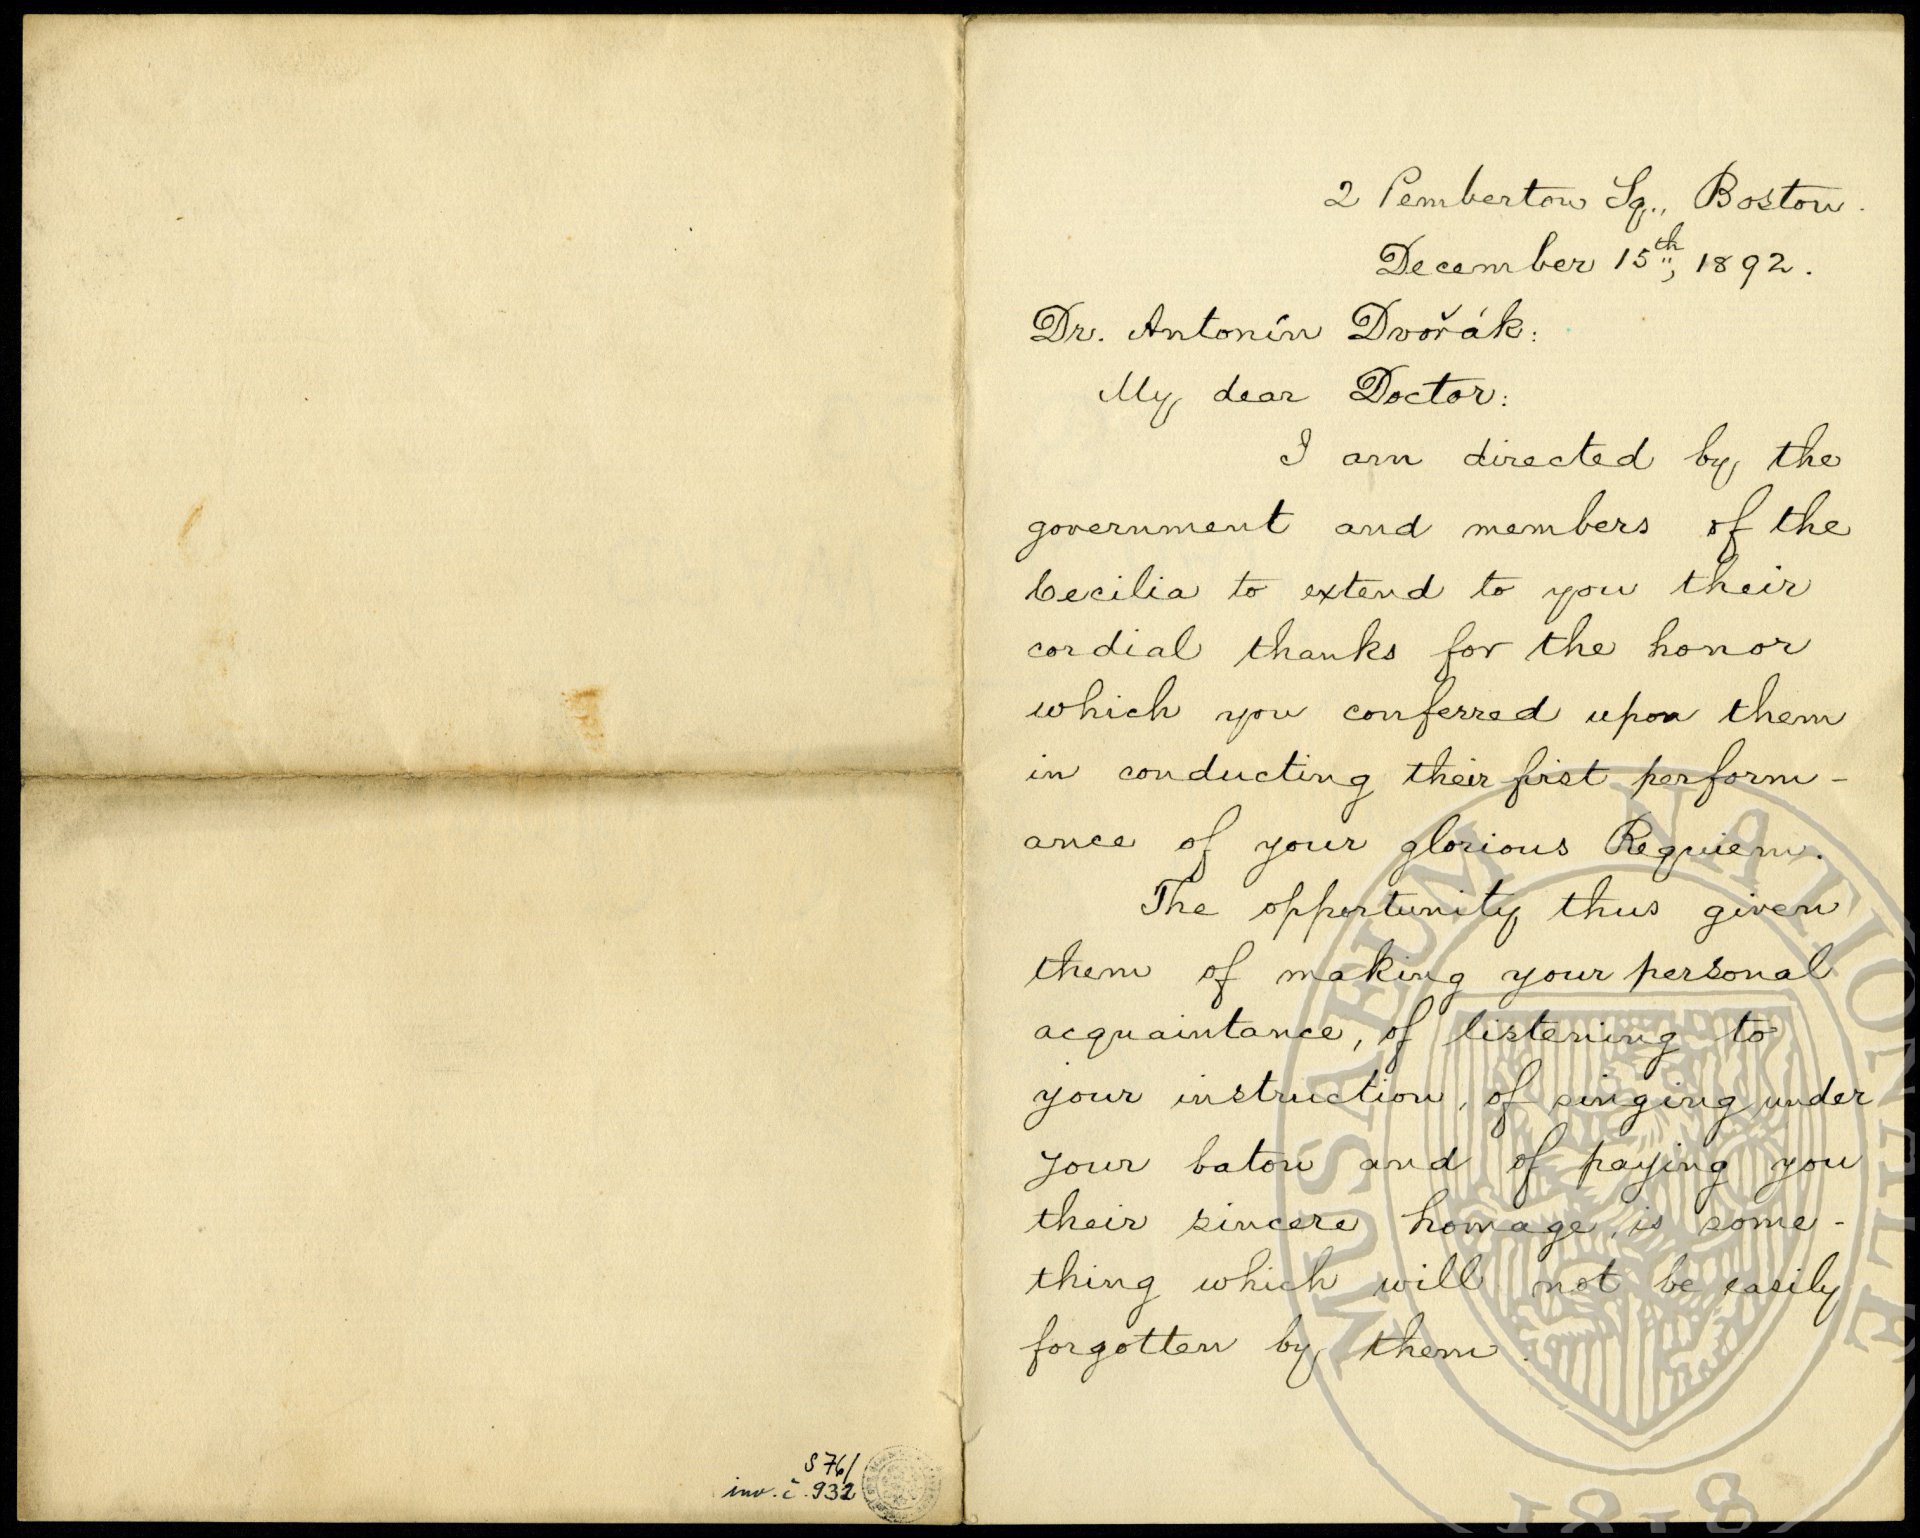 2 Pemberton Sq., Boston.
December 15th, 1892.
Dr. Antonín Dvořák:
My dear Doctor:
I am directed by the
government and members of the
Cecilia to extend to you their
cordial thanks for the honor
which you conferred upon them
in conducting their first perform-
ance of your glorious Requiem.
The opportunity thus given
them of making your personal
acquaintance, of listening to
your instruction, of singing under
your baton and of paying you
their sincere homage, is some-
thing which will not be easily
forgotten by them.
S 76/
inv. č. 932
MUSAEUM NATIONALE
1818